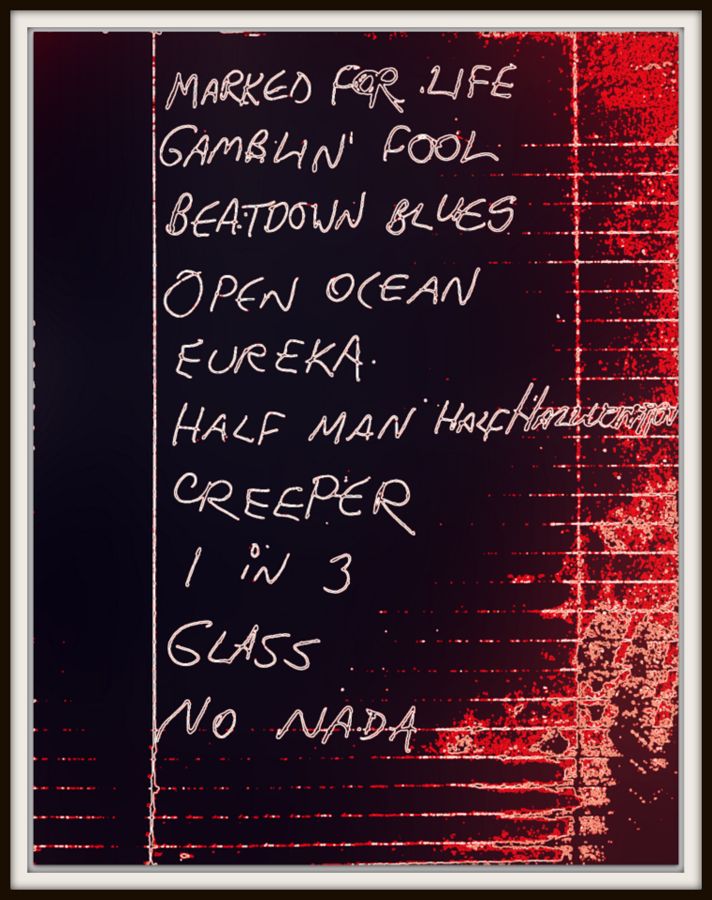 MARKED FOR LIFE
GAMBLIN' FOOL
BEATDOWN BLUES
OPEN OCEAN
EUREKA.
HALF MAN HALF
CREEPER
1 iN 3
GLASS
NO NADA